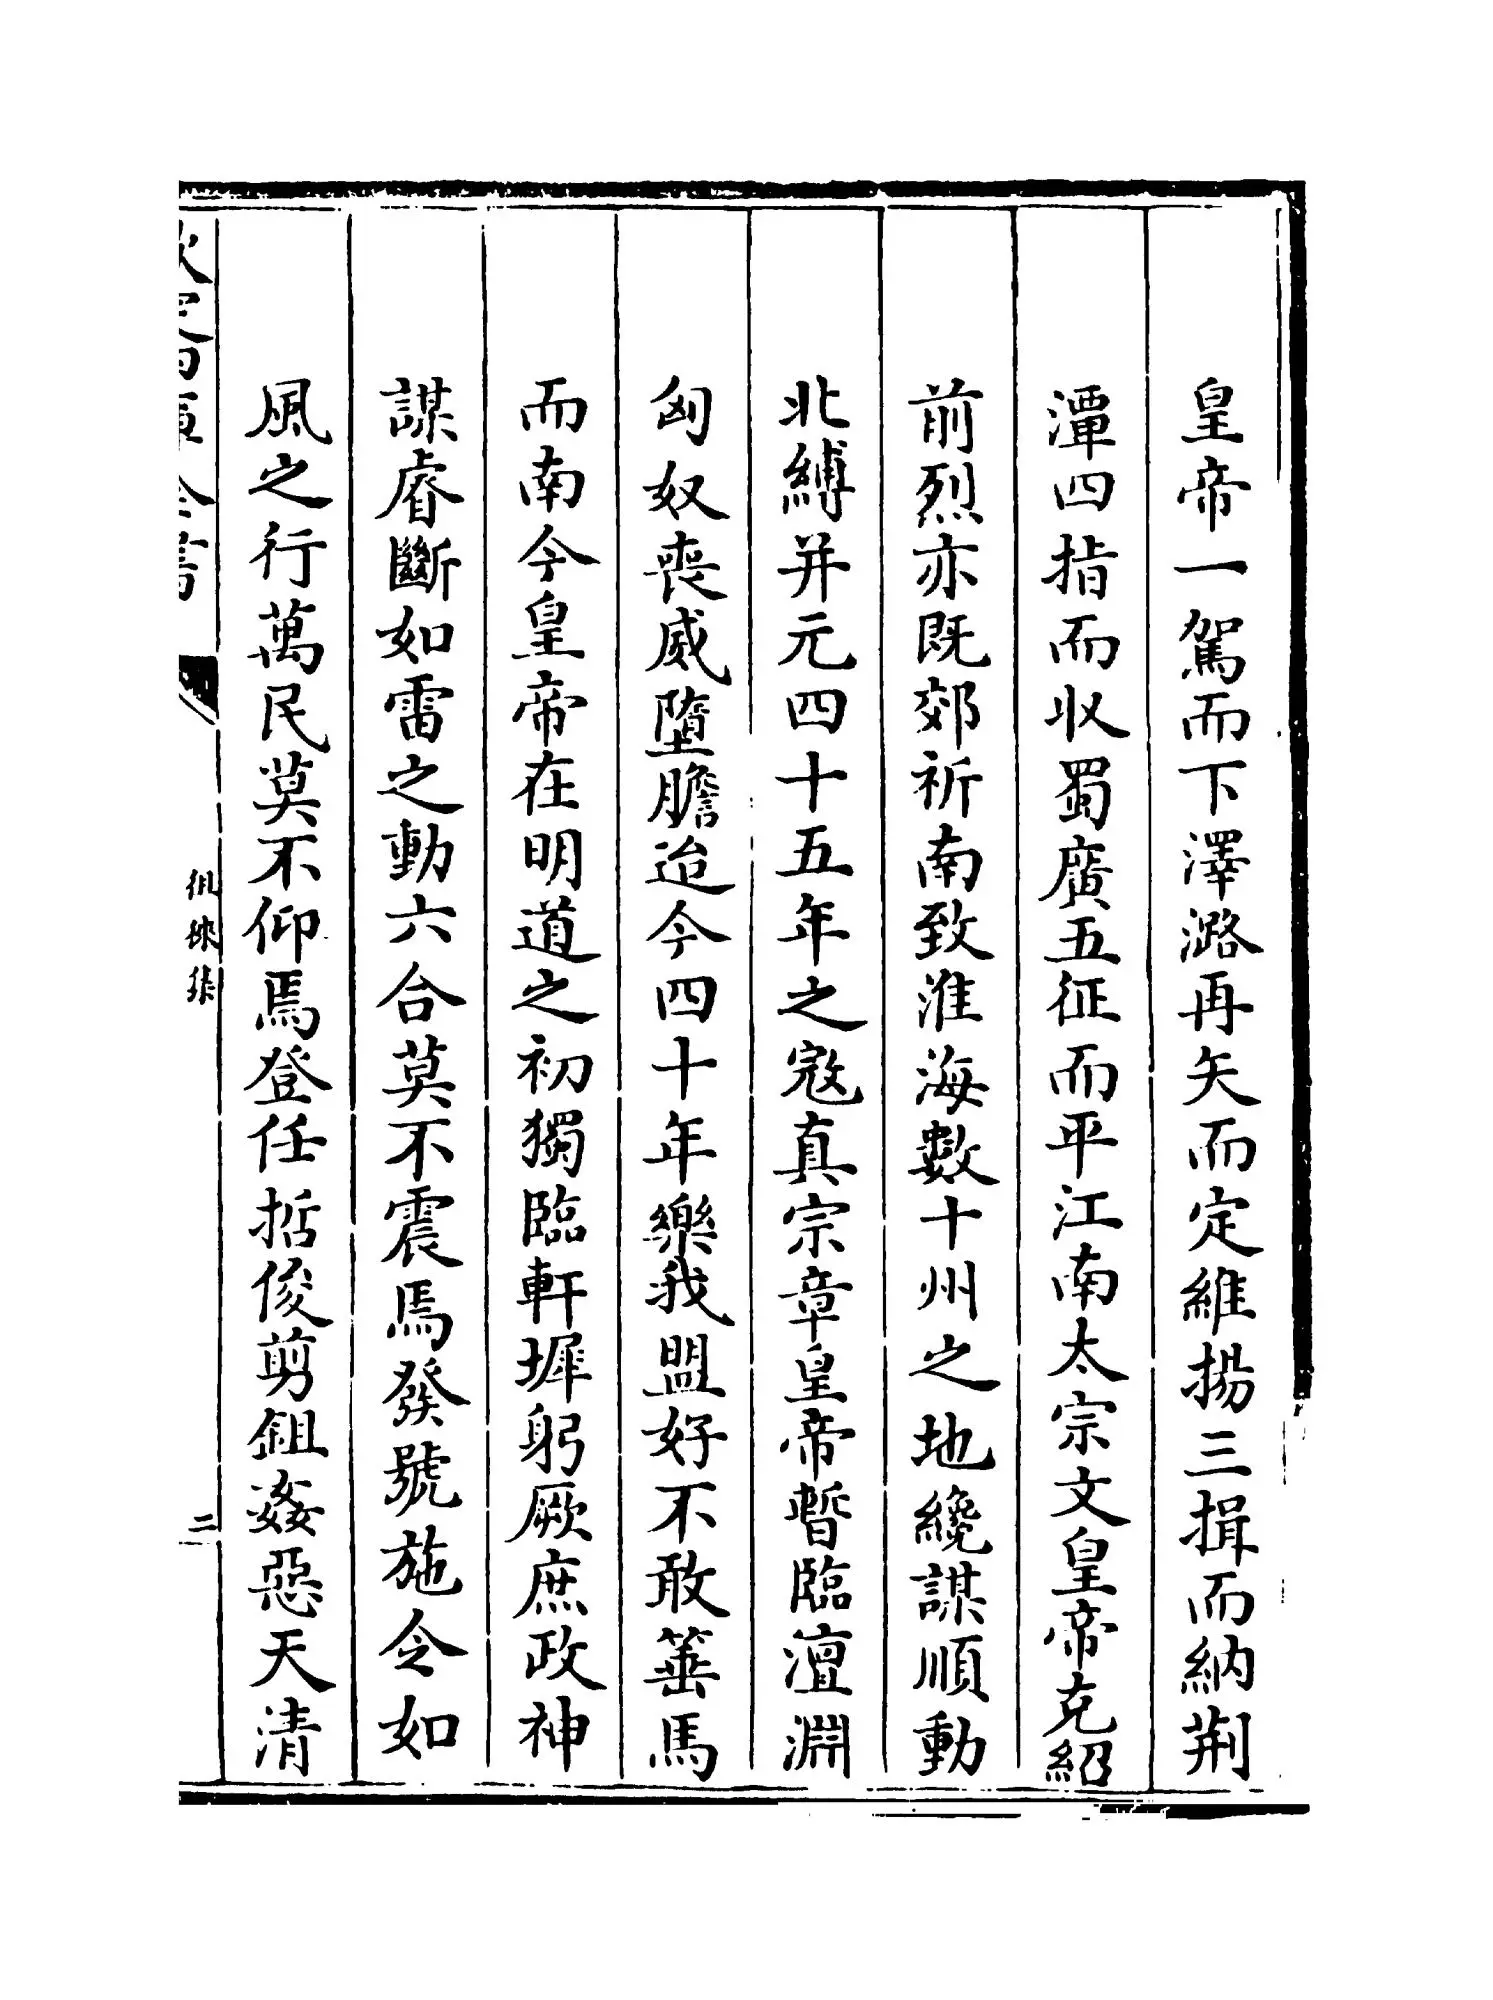 皇帝一駕而下澤潞再矢而定維揚三揖而納荆
潭四指而收蜀廣五征而平江南太宗文皇帝克紹
前烈亦既郊祈南致淮海數十州之地纔謀順動
北縛并元四十五年之寇真宗章皇帝暫臨澶淵
匈奴喪威墮膽迨今四十年樂我盟好不敢箠馬
而南今皇帝在明道之初獨臨軒墀躬厥庶政神
謀睿斷如雷之動六合莫不震焉發號施令如
風之行萬民莫不仰焉登任哲俊剪鉏姦惡天清
欽定四庫全書
徂徠集
二